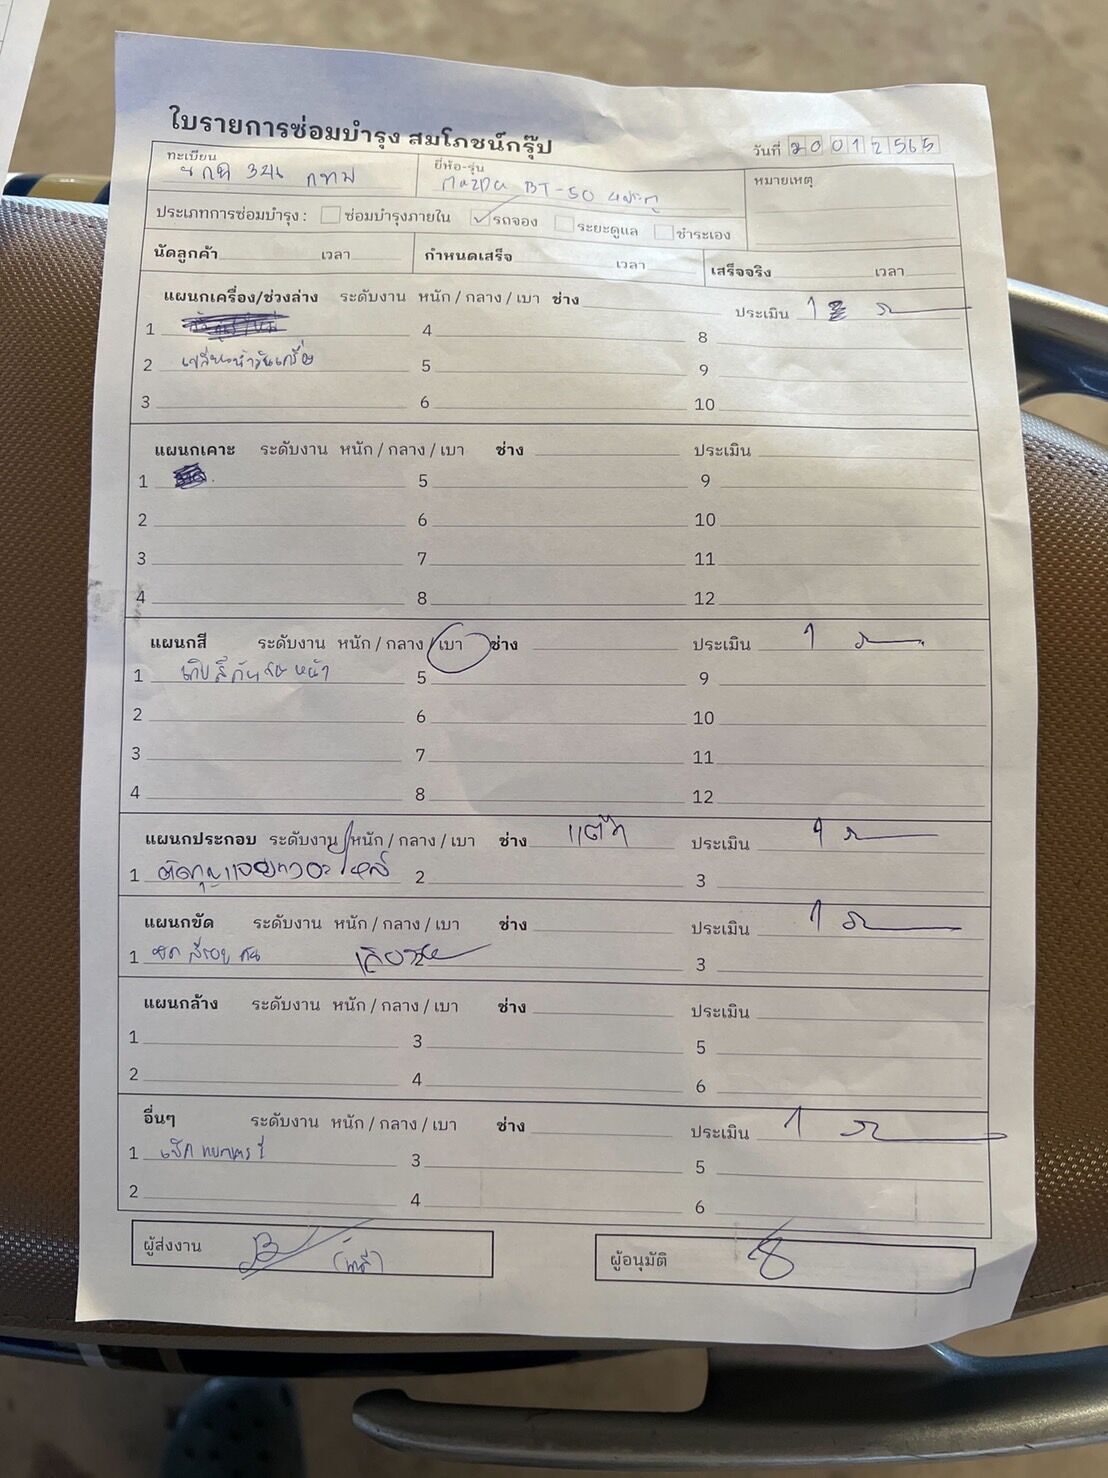 ใบรายการซ่อมบำรุง สมโภชน์กรุ๊ป
วันที่ 20012565
ทะเบียน กทม
ยี่ห้อ-รุ่น Mazda BT-50 4ประตู
หมายเหตุ
ประเภทการซ่อมบำรุง : ซ่อมบำรุงภายใน รถจอง ระยะดูแล ชำระเอง
นัดลูกค้า เวลา กำหนดเสร็จ เวลา เสร็จจริง เวลา
แผนกเครื่อง/ช่วงล่าง ระดับงาน หนัก / กลาง / เบา ช่าง ประเมิน 1
1 4 8
2 เปลี่ยนน้ำมันเครื่อง 5 9
3 6 10
แผนกเคาะ ระดับงาน หนัก / กลาง / เบา ช่าง ประเมิน
1 5 9
2 6 10
3 7 11
4 8 12
แผนกสี ระดับงาน หนัก / กลาง / เบา ช่าง ประเมิน 1
1 เก็บสีกันชนหน้า 5 9
2 6 10
3 7 11
4 8 12
แผนกประกอบ ระดับงาน หนัก / กลาง / เบา ช่าง ประเมิน 1
1 2 3
แผนกขัด ระดับงาน หนัก / กลาง / เบา ช่าง ประเมิน 1
1 ขัดสีรอบคัน 3
แผนกล้าง ระดับงาน หนัก / กลาง / เบา ช่าง ประเมิน
1 3 5
2 4 6
อื่นๆ ระดับงาน หนัก / กลาง / เบา ช่าง ประเมิน 1
1 3 5
2 4 6
ผู้ส่งงาน ผู้อนุมัติ